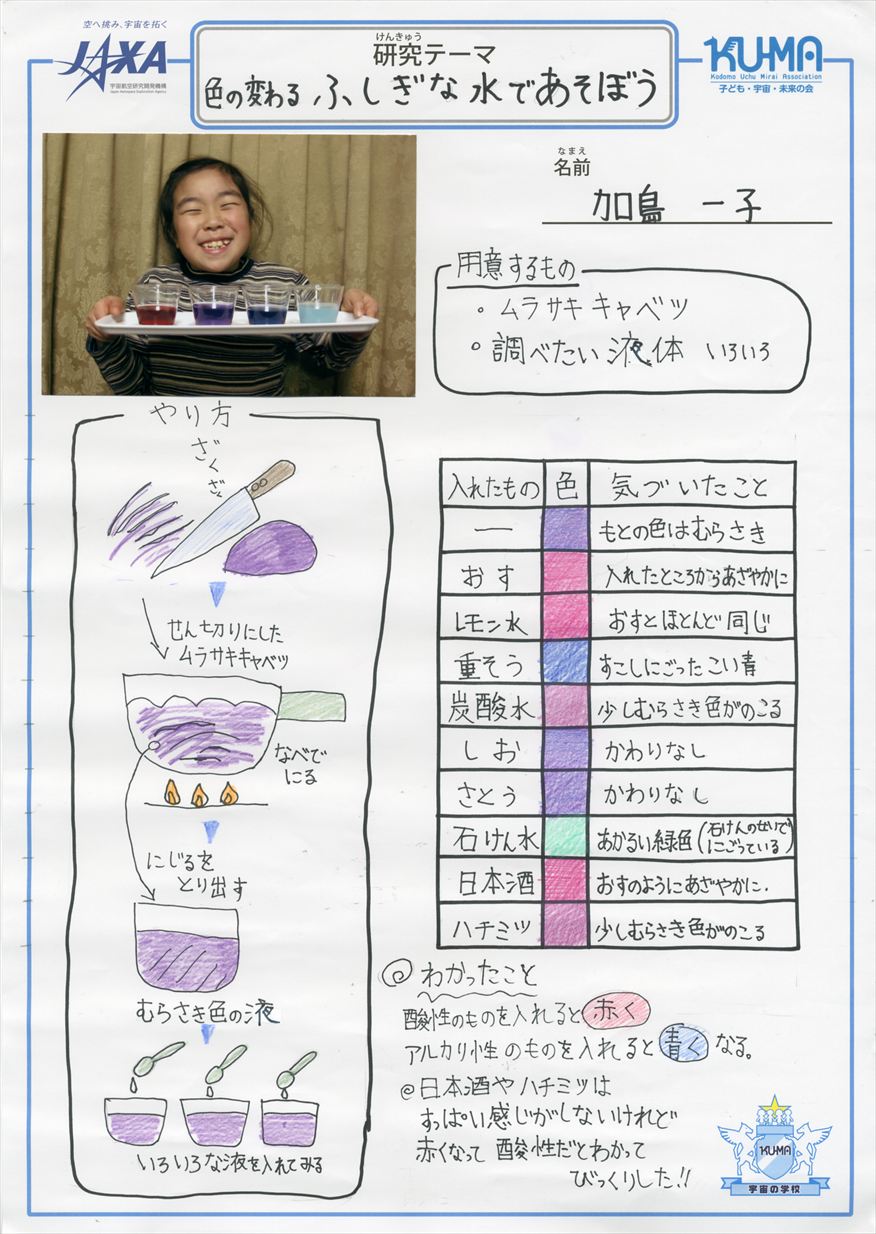 空へ挑み、宇宙を拓く
JAXA
宇宙航空研究開発機構
Japan Aerospace Exploration Agency
けんきゅう
研究テーマ
色の変わる ふしぎな水であそぼう
KU-MA
Kodomo Uchu Mirai Association
子ども・宇宙・未来の会
なまえ
名前
加島 一子
用意するもの
・ムラサキキャベツ
・調べたい液体 いろいろ
やり方
ざくざく
せん切りにした
ムラサキキャベツ
なべで
にる
にじるを
とり出す
むらさき色の液
いろいろな液を入れてみる
入れたもの 色 気づいたこと
― もとの色はむらさき
おす 入れたところからあざやかに
レモン水 おすとほとんど同じ
重そう すこしにごったこい青
炭酸水 少しむらさき色がのこる
しお かわりなし
さとう かわりなし
石けん水 あかるい緑色(石けんのせいでにごっている)
日本酒 おすのようにあざやかに.
ハチミツ 少しむらさき色がのこる
◎わかったこと
酸性のものを入れると赤く
アルカリ性のものを入れると青くなる。
◎日本酒やハチミツは
すっぱい感じがしないけれど
赤くなって酸性だとわかって
びっくりした!!
KU-MA
宇宙の学校